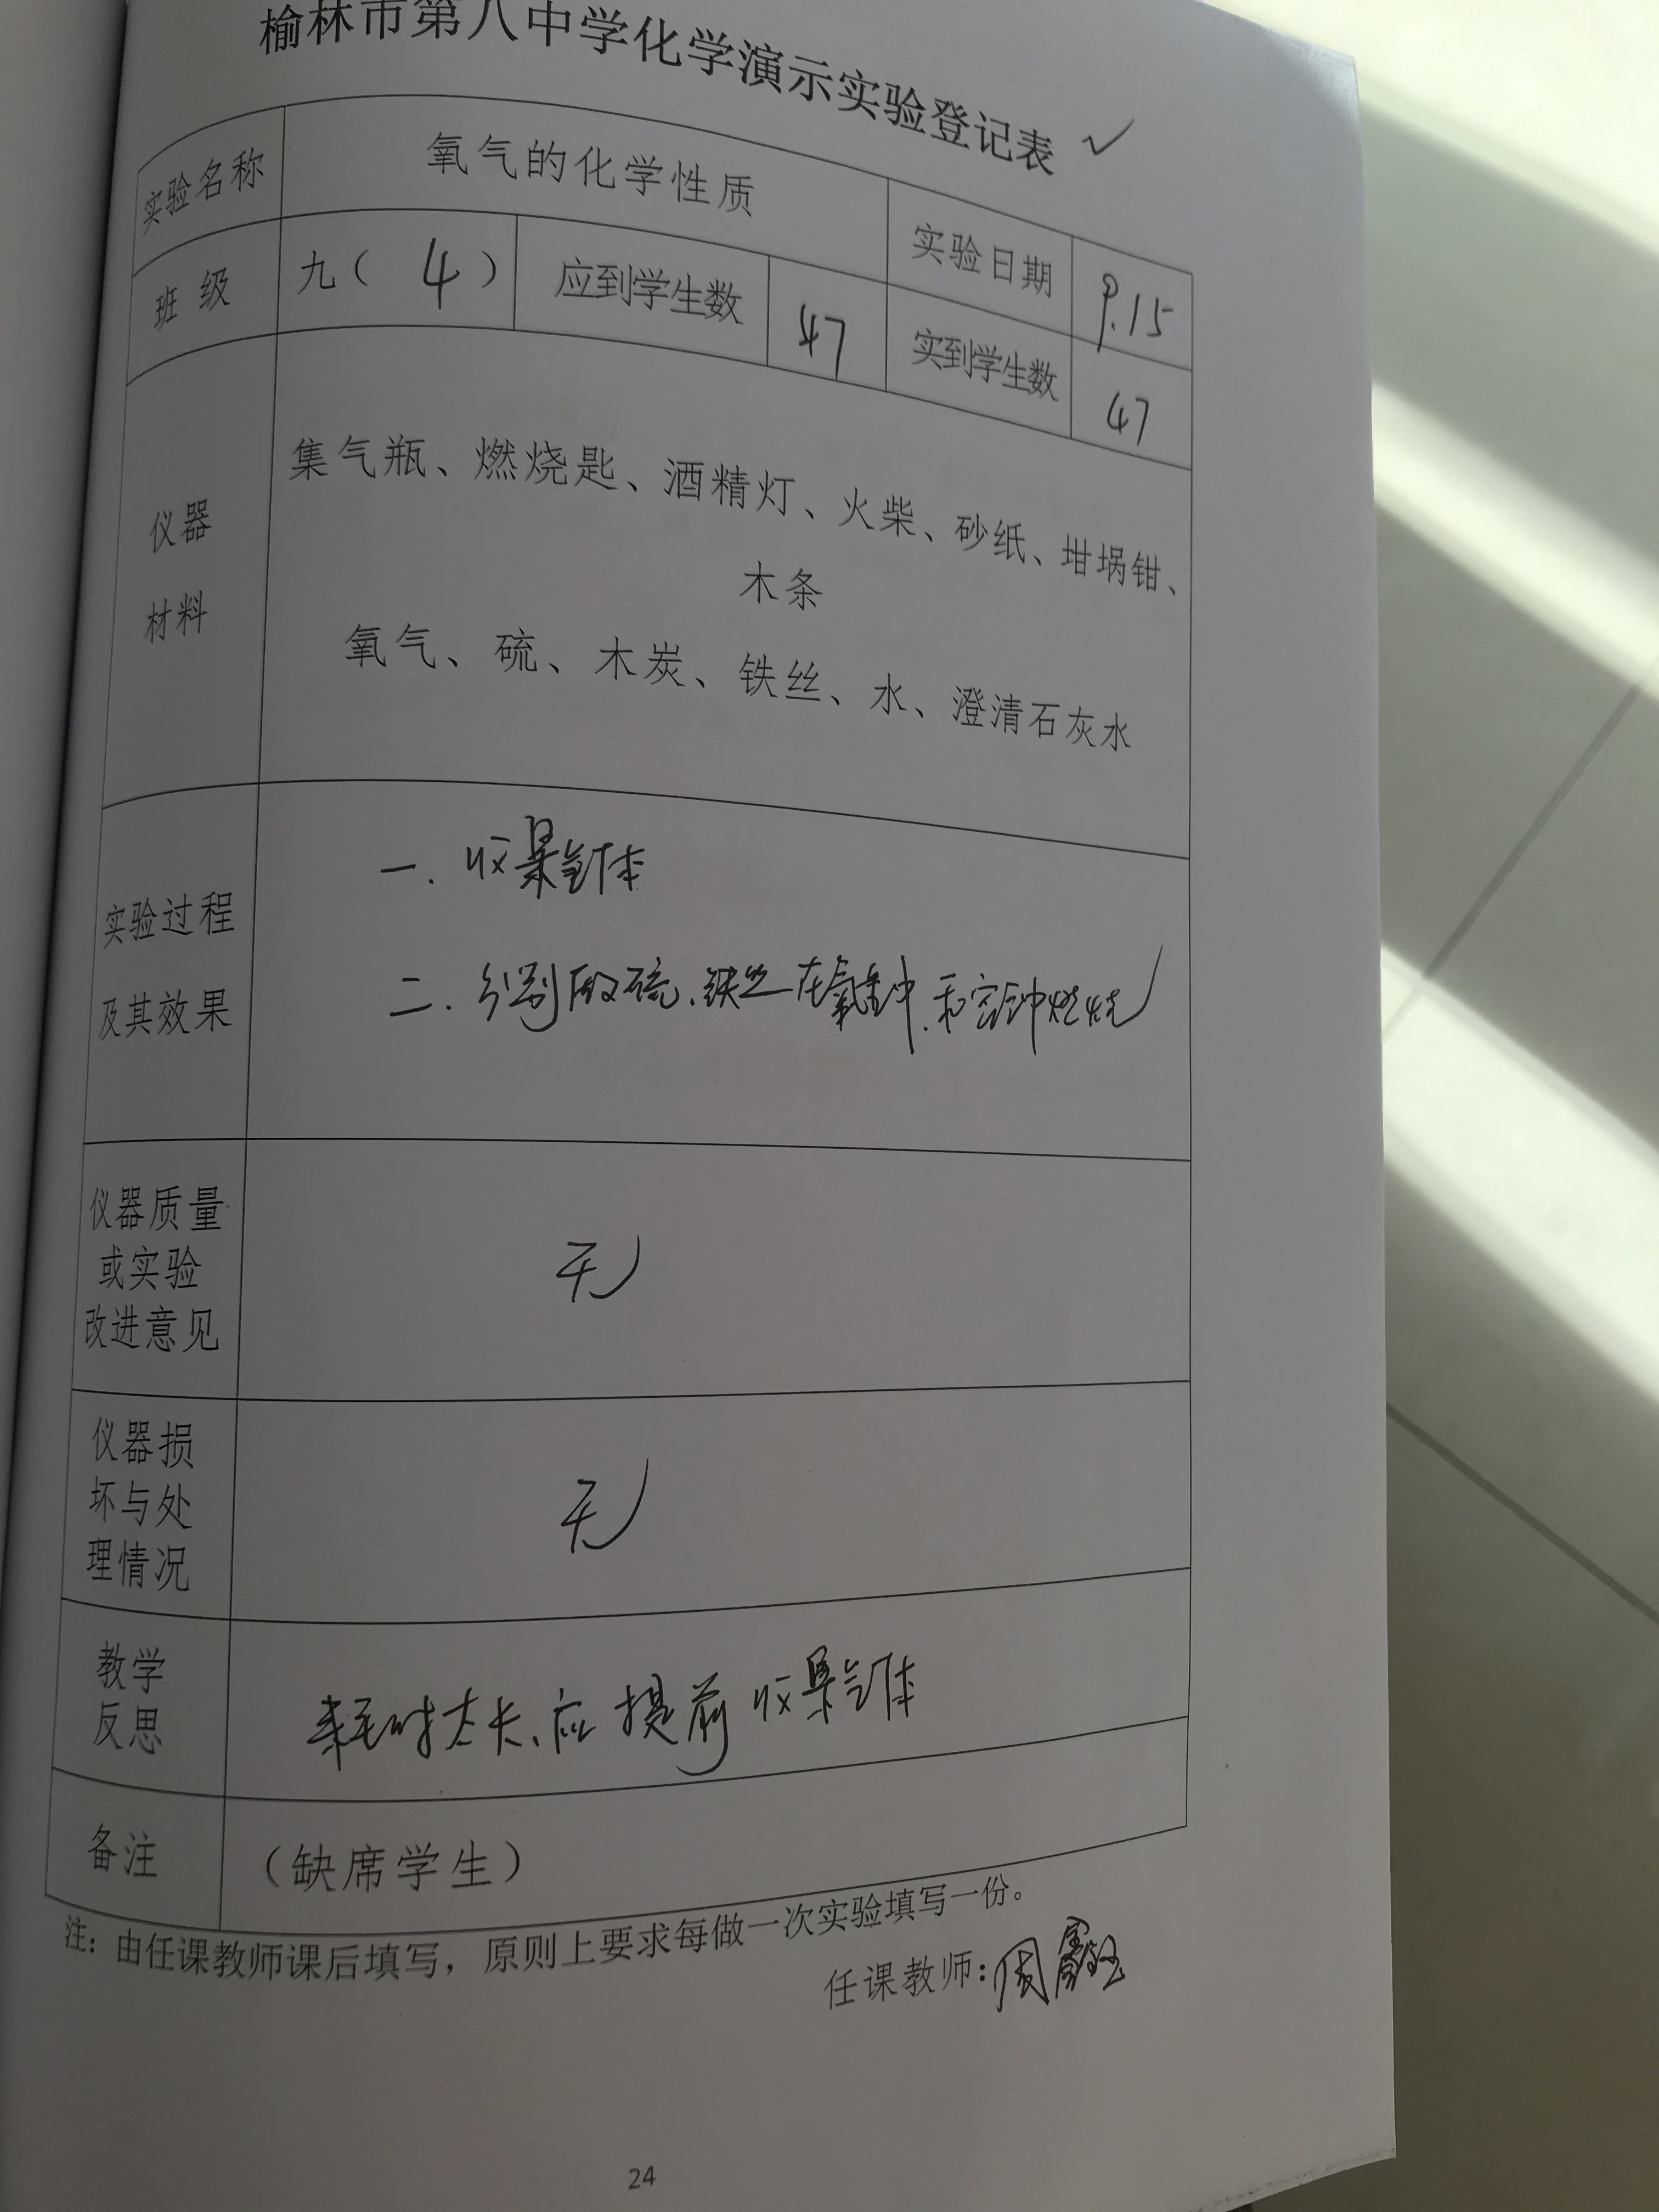 榆林市第八中学化学演示实验登记表 ✓
实验名称 氧气的化学性质 实验日期 9.15
班级 九（ 4 ） 应到学生数 47 实到学生数 47
仪器
材料
集气瓶、燃烧匙、酒精灯、火柴、砂纸、坩埚钳、
木条
氧气、硫、木炭、铁丝、水、澄清石灰水
实验过程
及其效果
一. 收集气体
二. 分别取硫、铁丝在氧气中.和空气中燃烧
仪器质量
或实验
改进意见
无
仪器损
坏与处
理情况
无
教学
反思
耗时太长、应提前收集气体
备注 （缺席学生）
注：由任课教师课后填写，原则上要求每做一次实验填写一份。
任课教师：周
24